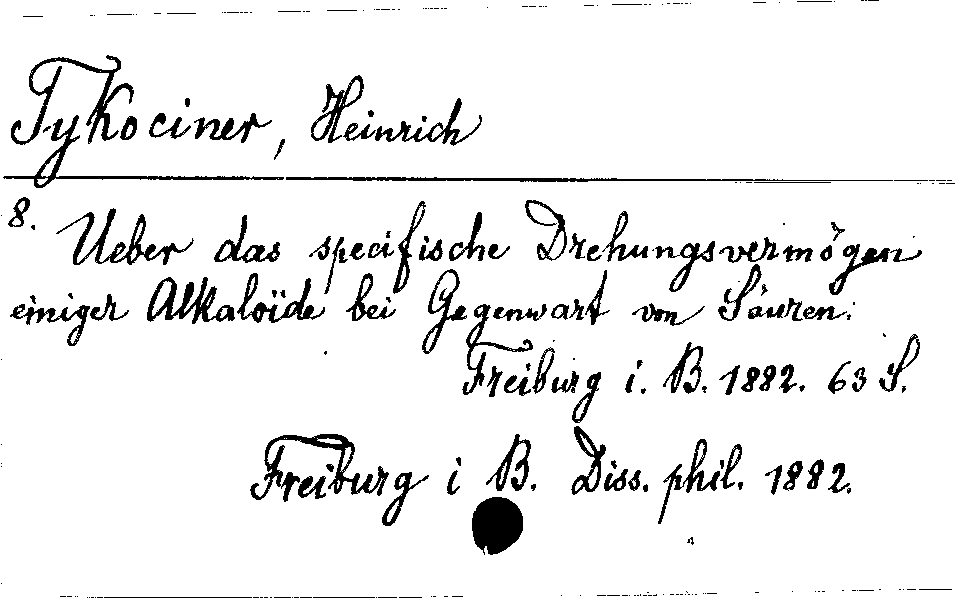 Tykociner, Heinrich
8.
Ueber das specifische Drehungsvermögen
einiger Alkaloïde bei Gegenwart von Säuren.
Freiburg i. B. 1882. 63 S.
Freiburg i B. Diss. phil. 1882.
4